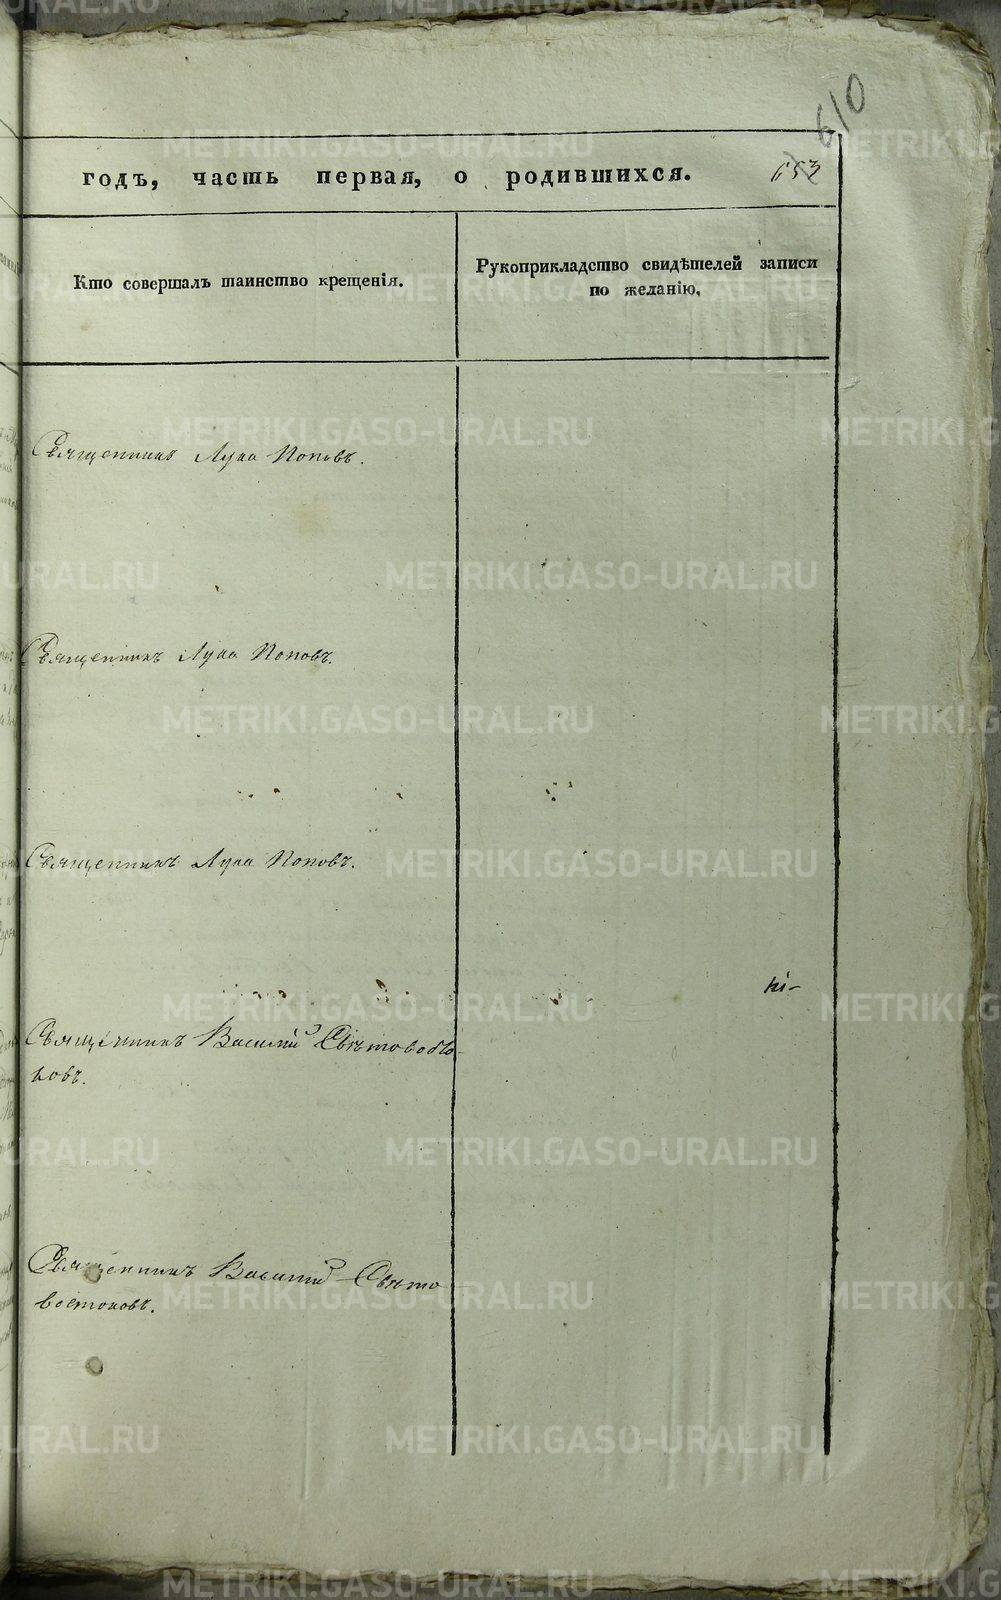 610
годъ, часть первая, о родившихся.
653
Кто совершалъ таинство крещенія.
Рукоприкладство свидѣтелей записи
по желанію,
Священникъ Лука Поповъ.
Священникъ Лука Поповъ.
Священникъ Лука Поповъ.
Священникъ Василій Свѣтово
ковъ.
Священникъ Василій Свѣто
востоковъ.
METRIKI.GASO-URAL.RU